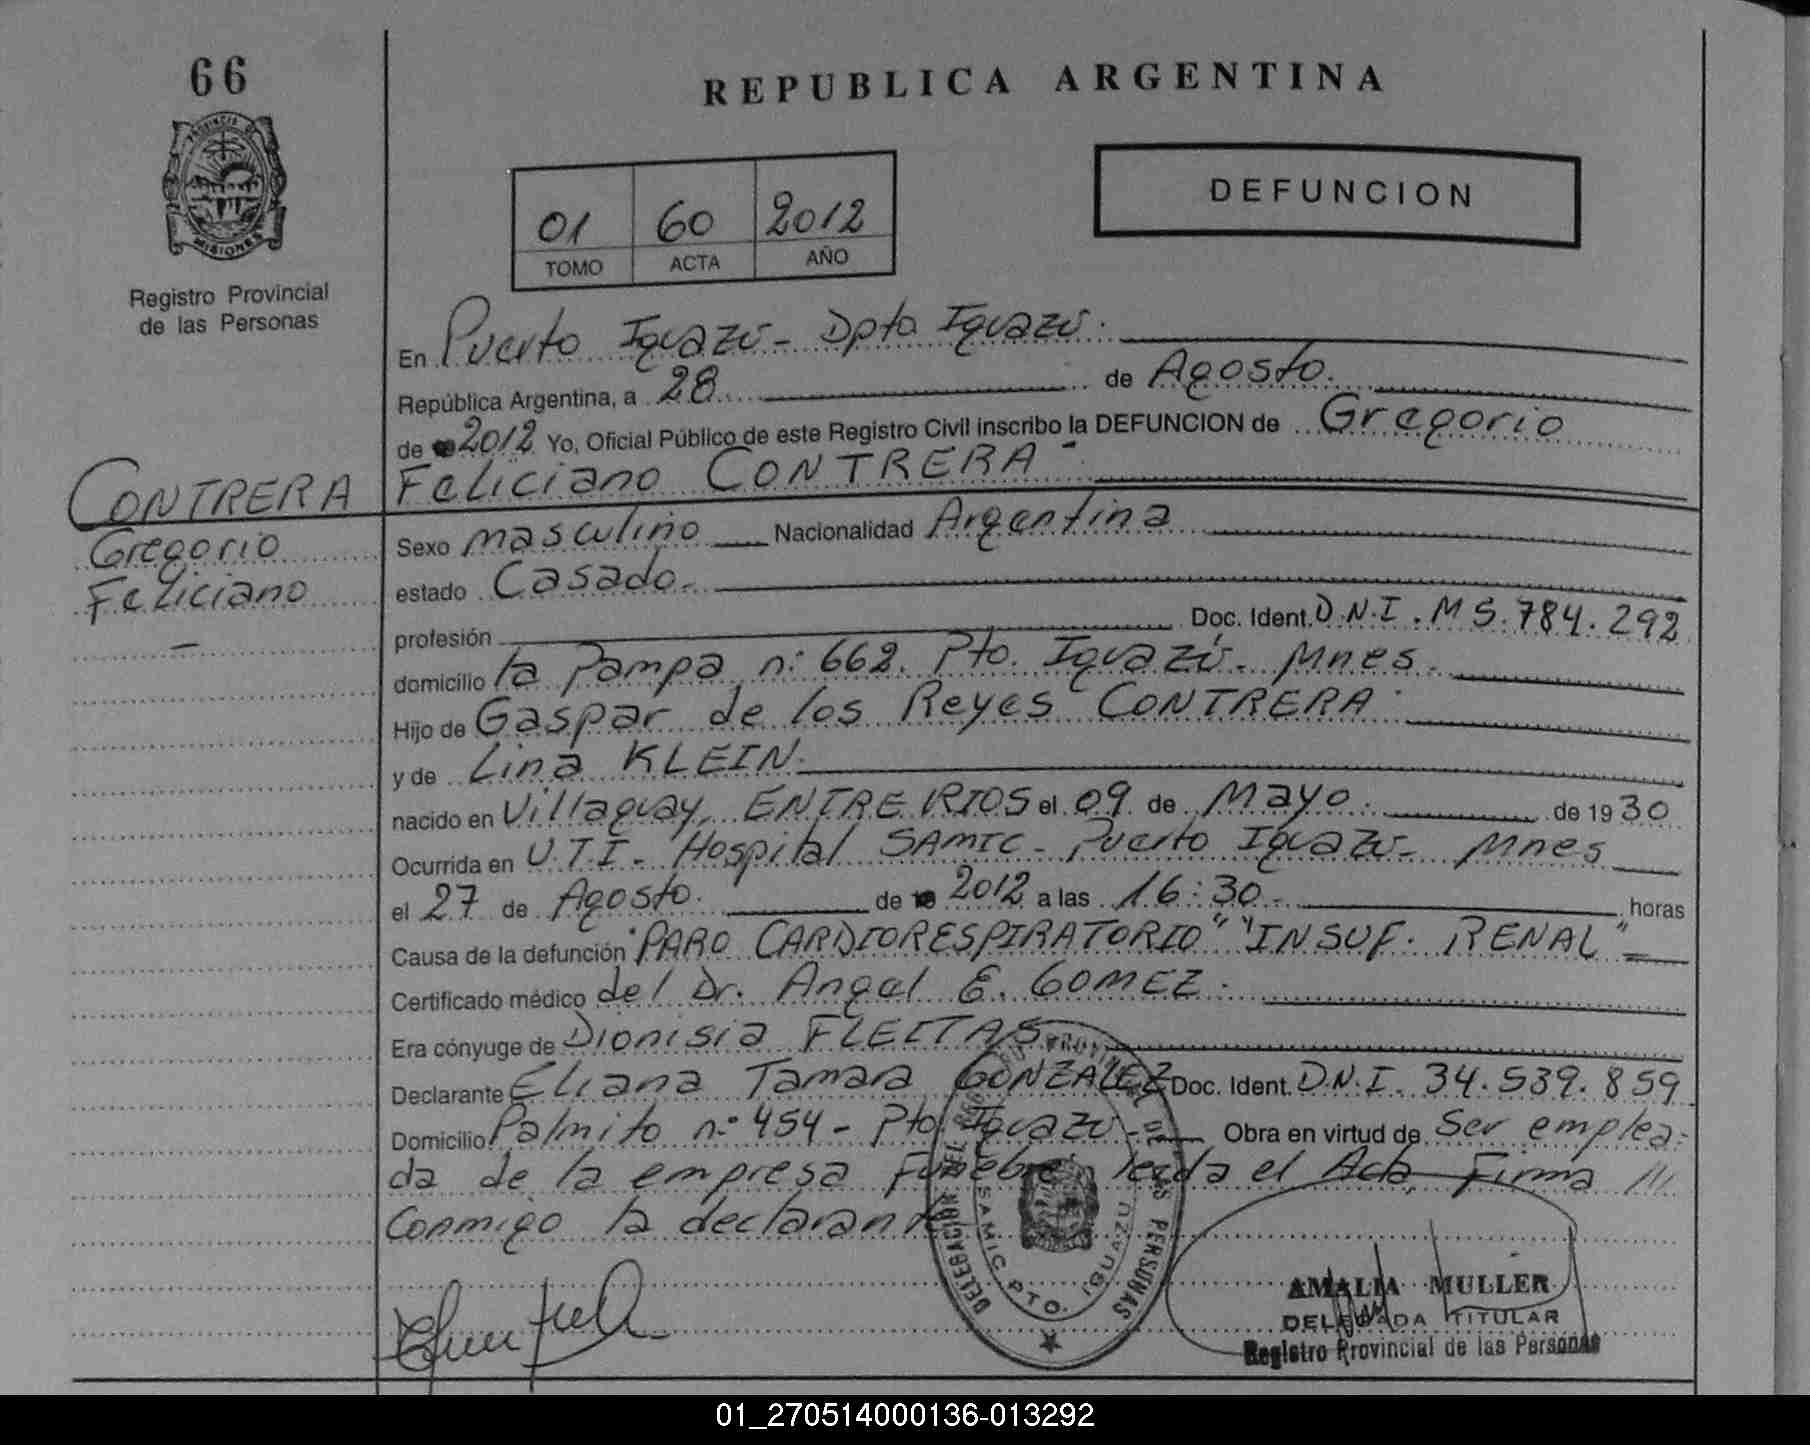 66
REPUBLICA ARGENTINA
PROVINCIA DE
MISIONES
Registro Provincial
de las Personas
01 60 2012
TOMO ACTA AÑO
DEFUNCION
En Puerto Iguazú - Dpto Iguazú.
República Argentina, a 28 de Agosto.
de 2012 Yo, Oficial Público de este Registro Civil inscribo la DEFUNCION de Gregorio
Feliciano CONTRERA -
CONTRERA
Gregorio
Feliciano
Sexo masculino Nacionalidad Argentina
estado Casado.
profesión Doc. Ident. D.N.I. M 5.784.292
domicilio la Pampa n: 662. Pto. Iguazú. Mnes.
Hijo de Gaspar de los Reyes CONTRERA
y de Lina KLEIN.
nacido en Villaguay, ENTRE RIOS el 09 de Mayo. de 1930
Ocurrida en U.T.I. - Hospital SAMIC - Puerto Iguazú - Mnes
el 27 de Agosto. de 2012 a las 16:30. horas
Causa de la defunción "PARO CARDIORESPIRATORIO" "INSUF. RENAL"
Certificado médico del Dr. Angel E. GOMEZ.
Era cónyuge de Dionisia FLEITAS
Declarante Eliana Tamara GONZALEZ Doc. Ident. D.N.I. 34.539.859
Domicilio Palmito n: 454 - Pto Iguazú - Obra en virtud de Ser emplea-
da de la empresa Funebre leida el Acta, Firma
Conmigo la declarante
DELEGACION DEL REGISTRO PROVINCIAL DE LAS PERSONAS
SAMIC PTO. IGUAZU
AMALIA MULLER
DELEGADA TITULAR
Registro Provincial de las Personas
01_270514000136-013292